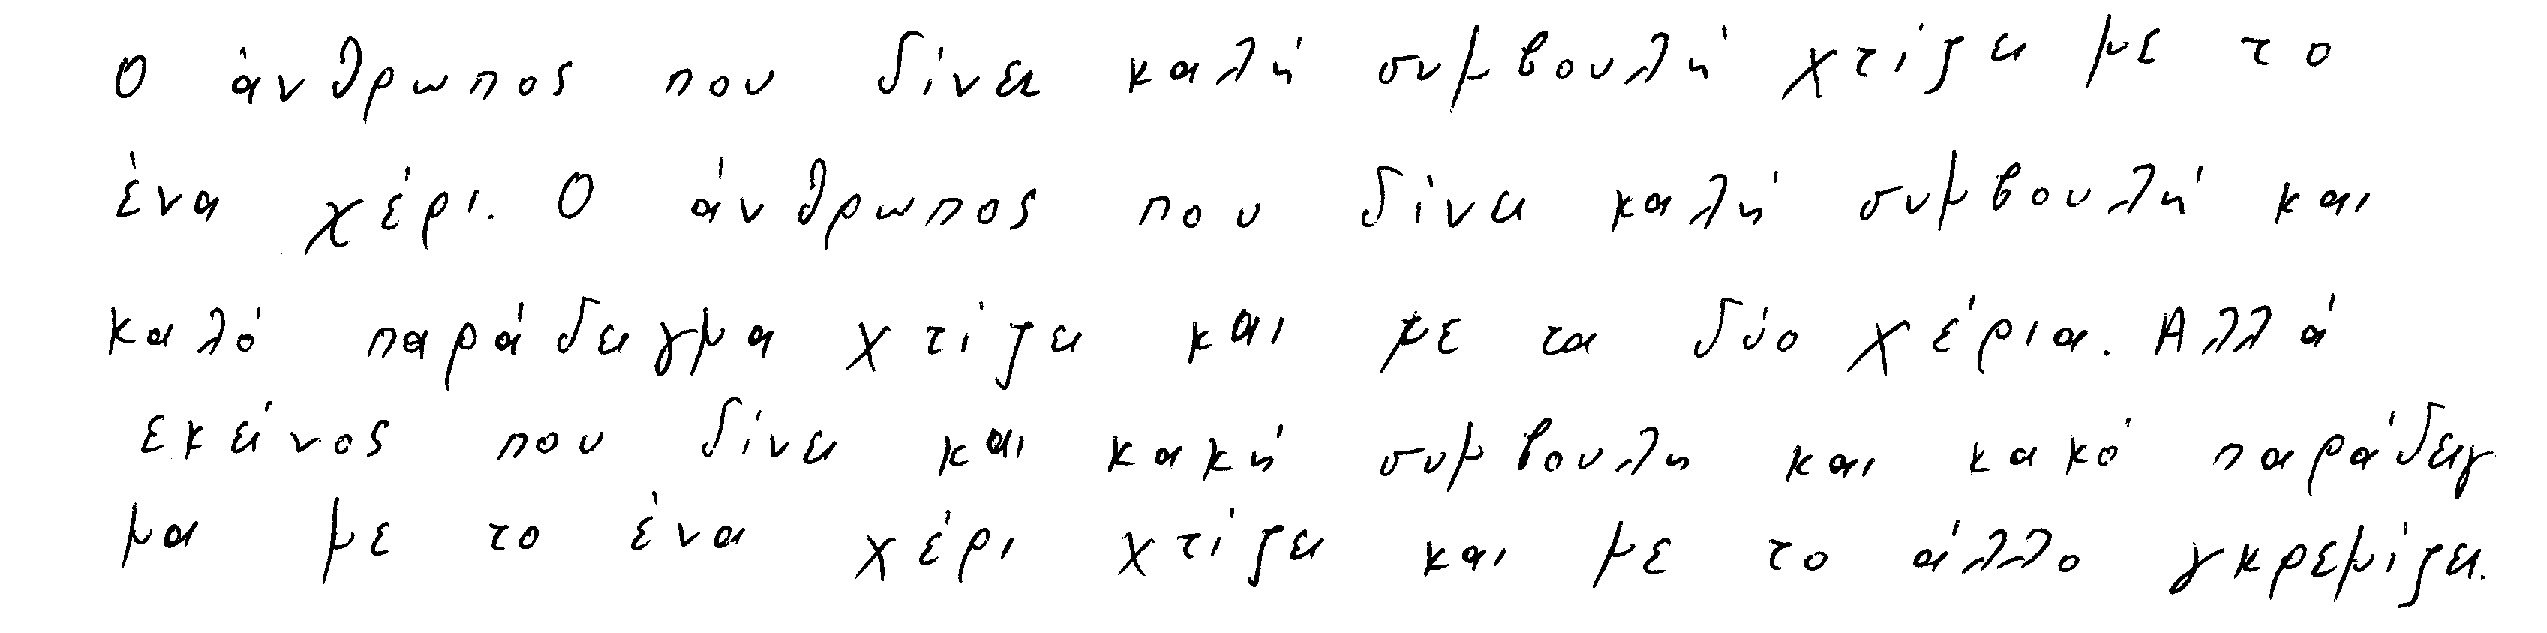 Ο άνθρωπος που δίνει καλή συμβουλή χτίζει με το
ένα χέρι. Ο άνθρωπος που δίνει καλή συμβουλή και
καλό παράδειγμα χτίζει και με τα δύο χέρια. Αλλά
εκείνος που δίνει και κακή συμβουλη και κακό παράδειγ
μα με το ένα χέρι χτίζει και με το άλλο γκρεμίζει.